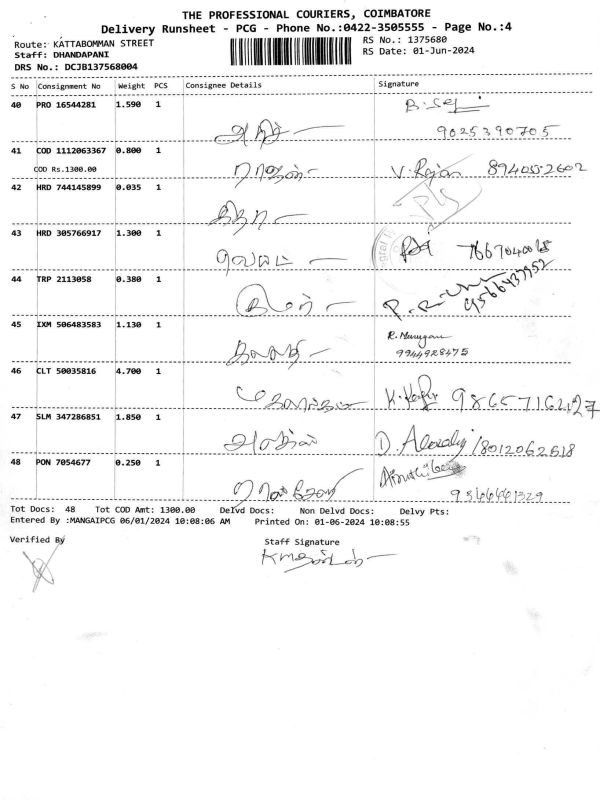 THE PROFESSIONAL COURIERS, COIMBATORE
Delivery Runsheet - PCG - Phone No.:0422-3505555 - Page No.:4
Route: KATTABOMMAN STREET RS No.: 1375680
Staff: DHANDAPANI RS Date: 01-Jun-2024
DRS No.: DCJB137568004
S No Consignment No Weight PCS Consignee Details Signature
40 PRO 16544281 1.590 1
9025390705
41 COD 1112063367 0.800 1 V. Rajan 8940552602
COD Rs.1300.00
42 HRD 744145899 0.035 1
43 HRD 305766917 1.300 1
44 TRP 2113058 0.380 1 9566437952
45 IXM 506483583 1.130 1 R. Murugan
9944928475
46 CLT 50035816 4.700 1
47 SLM 347286851 1.850 1 8012062518
48 PON 7054677 0.250 1
Tot Docs: 48 Tot COD Amt: 1300.00 Delvd Docs: Non Delvd Docs: Delvy Pts:
Entered By :MANGAIPCG 06/01/2024 10:08:06 AM Printed On: 01-06-2024 10:08:55
Verified By Staff Signature